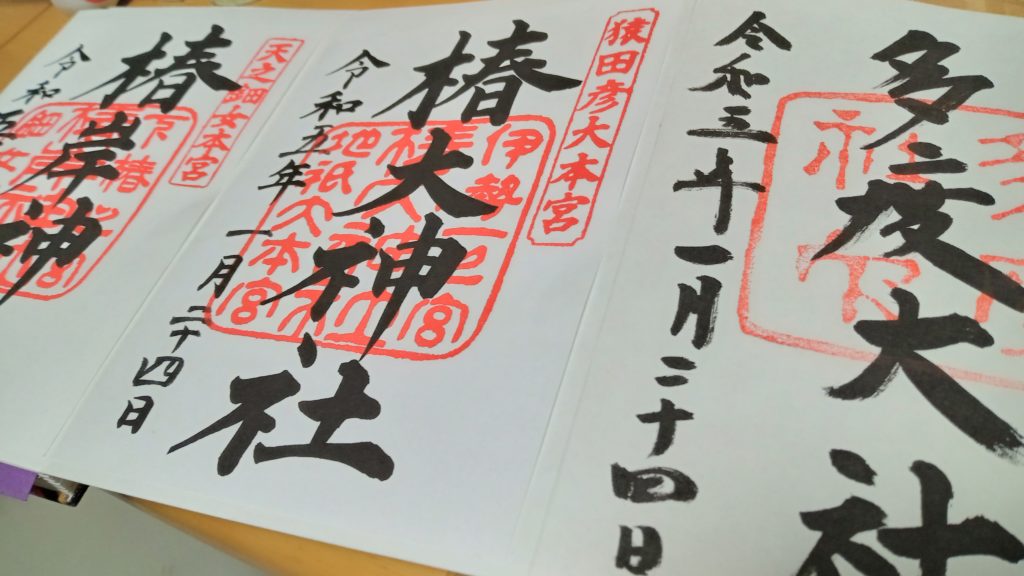 多度大社
令和五年一月二十四日
猿田彦大本宮
椿大神社
伊勢一之宮
椿大神社
地祇大本宮
令和五年一月二十四日
天之鈿女本宮
椿岸神
令和